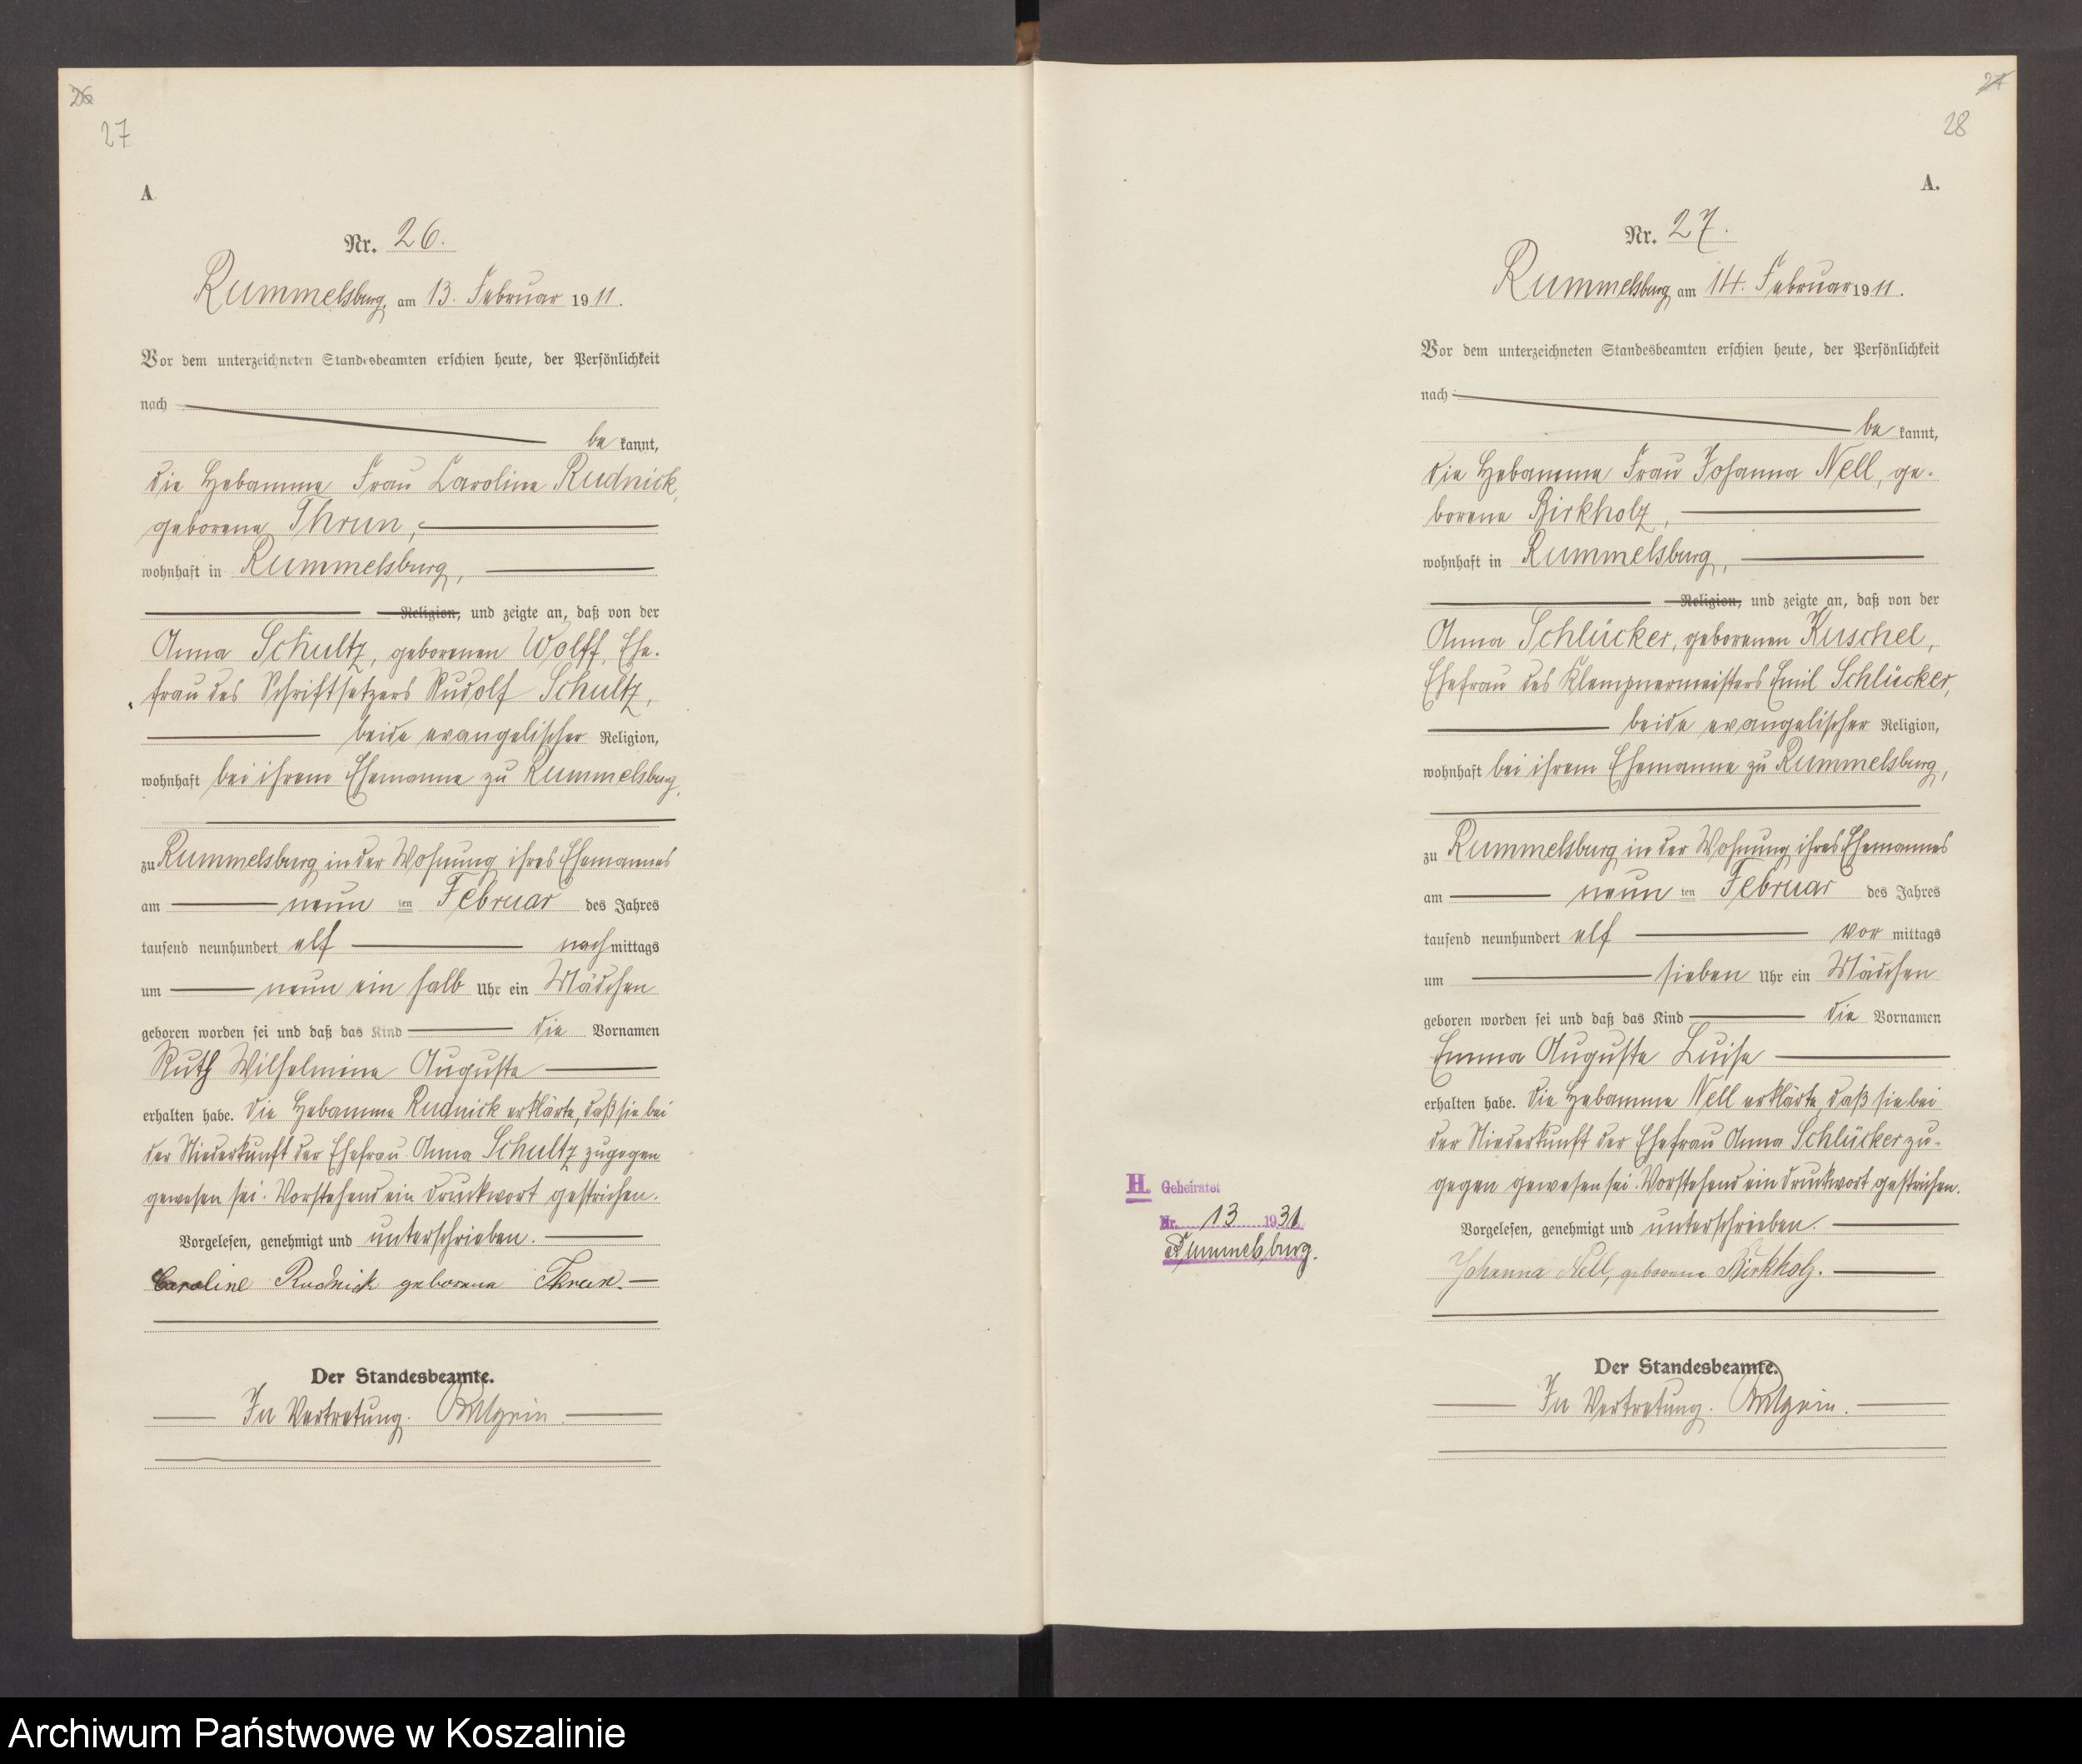 26
27
A
Nr. 26.
Rummelsburg, am 13. Februar 1911.
Vor dem unterzeichneten Standesbeamten erschien heute, der Persönlichkeit
nach
be kannt,
die Hebamme Frau Caroline Rudnick,
geborene Thrun,
wohnhaft in Rummelsburg,
Religion, und zeigte an, daß von der
Anna Schultz, geborenen Wolff, Ehe-
frau des Schriftsetzers Rudolf Schultz,
beide evangelischer Religion,
wohnhaft bei ihrem Ehemanne zu Rummelsburg,
zu Rummelsburg in der Wohnung ihres Ehemannes
am neun ten Februar des Jahres
tausend neunhundert elf nachmittags
um neun ein halb Uhr ein Mädchen
geboren worden sei und daß das Kind die Vornamen
Ruth Wilhelmine Auguste
erhalten habe. Die Hebamme Rudnick erklärte, daß sie bei
der Niederkunft der Ehefrau Anna Schultz zugegen
gewesen sei. Vorstehend ein Druckwort gestrichen.
Vorgelesen, genehmigt und unterschrieben.
Caroline Rudnick geborene Thrun.
Der Standesbeamte.
In Vertretung.
27
28
A.
Nr. 27.
Rummelsburg am 14. Februar 1911.
Vor dem unterzeichneten Standesbeamten erschien heute, der Persönlichkeit
nach
be kannt,
die Hebamme Frau Johanna Nell, ge-
borene Birkholz,
wohnhaft in Rummelsburg,
Religion, und zeigte an, daß von der
Anna Schlücker, geborenen Kuschel,
Ehefrau des Klempnermeisters Emil Schlücker,
beide evangelischer Religion,
wohnhaft bei ihrem Ehemanne zu Rummelsburg,
zu Rummelsburg in der Wohnung ihres Ehemannes
am neun ten Februar des Jahres
tausend neunhundert elf vor mittags
um sieben Uhr ein Mädchen
geboren worden sei und daß das Kind die Vornamen
Emma Auguste Luise
erhalten habe. Die Hebamme Nell erklärte, daß sie bei
der Niederkunft der Ehefrau Anna Schlücker zu-
gegen gewesen sei. Vorstehend ein Druckwort gestrichen.
Vorgelesen, genehmigt und unterschrieben.
Johanna Nell, geborene Birkholz.
Der Standesbeamte.
In Vertretung.
H. Geheiratet
Nr. 13 1931
Rummelsburg.
Archiwum Państwowe w Koszalinie